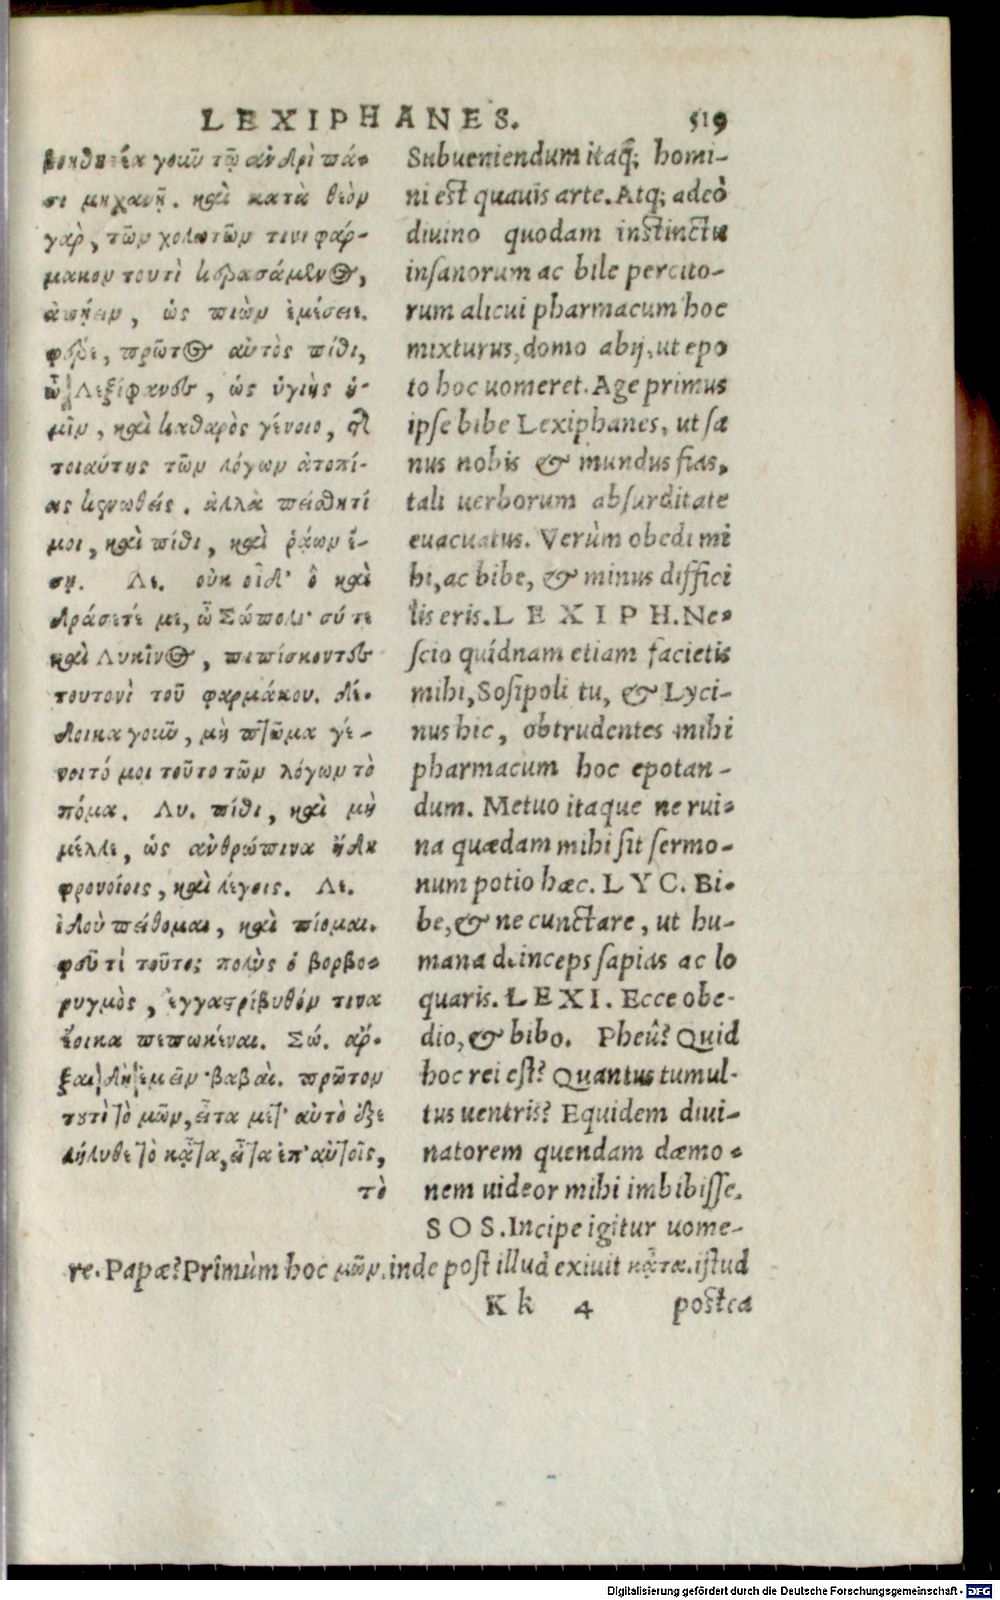 LEXIPHANES. 519
βοηθητέα γοῦν τῷ ἀνδρὶ πά-
σι μηχανῇ. καὶ κατὰ θεὸν
γὰρ, τῶν χολώντων τινι φάρ-
μακον τουτὶ κερασάμενος,
ἀπῄειν, ὡς πιὼν ἐμέσειε.
φέρε, πρῶτος αὐτὸς πίθι,
ὦ Λεξίφανες, ὡς ὑγιὴς ἡ-
μῖν, καὶ καθαρὸς γένοιο, τῆς
τοιαύτης τῶν λόγων ἀτοπί-
ας κενωθείς. ἀλλὰ πείσθητί
μοι, καὶ πίθι, καὶ ῥάων ἔ-
σῃ. Λε. οὐκ οἶδ' ὃ καὶ
δράσετέ με, ὦ Σώπολι· σύ τε
καὶ Λυκῖνος, πιπίσκοντες
τουτονὶ τοῦ φαρμάκου. δέ-
δοικα γοῦν, μὴ πτῶμα γέ-
νοιτό μοι τοῦτο τῶν λόγων τὸ
πόμα. Λυ. πίθι, καὶ μὴ
μέλλε, ὡς ἀνθρώπινα ἤδη
φρονοίοις, καὶ λέγοις. Λε.
ἰδοὺ πείθομαι, καὶ πίομαι.
φεῦ τί τοῦτο; πολὺς ὁ βορβο-
ρυγμὸς, ἐγγαστρίμυθόν τινα
ἔοικα πεπωκέναι. Σώ. ἄρ-
ξαι δὴ ἐμεῖν· βαβαὶ. πρῶτον
τουτὶ τὸ μῶν, εἶτα μετ' αὐτὸ ἐξε
λήλυθε τὸ κᾆτα, εἶτα ἐπ' αὐτοῖς,
τὸ
Subueniendum itaq; homi-
ni est quauis arte. Atq; adeò
diuino quodam instinctu
insanorum ac bile percito-
rum alicui pharmacum hoc
mixturus, domo abij, ut epo
to hoc uomeret. Age primus
ipse bibe Lexiphanes, ut sa
nus nobis & mundus fias,
tali uerborum absurditate
euacuatus. Verùm obedi mi
hi, ac bibe, & minus diffici
lis eris. LEXIPH. Ne-
scio quidnam etiam facietis
mihi, Sosipoli tu, & Lyci-
nus hic, obtrudentes mihi
pharmacum hoc epotan-
dum. Metuo itaque ne rui-
na quædam mihi sit sermo-
num potio hæc. LYC. Bi-
be, & ne cunctare, ut hu-
mana deinceps sapias ac lo
quaris. LEXI. Ecce obe-
dio, & bibo. Pheû? Quid
hoc rei est? Quantus tumul-
tus uentris? Equidem diui-
natorem quendam dæmo-
nem uideor mihi imbibisse.
SOS. Incipe igitur uome-
re. Papæ? Primùm hoc μῶν. inde post illud exiuit κᾆτα. istud
Kk 4 postea
Digitalisierung gefördert durch die Deutsche Forschungsgemeinschaft - DFG